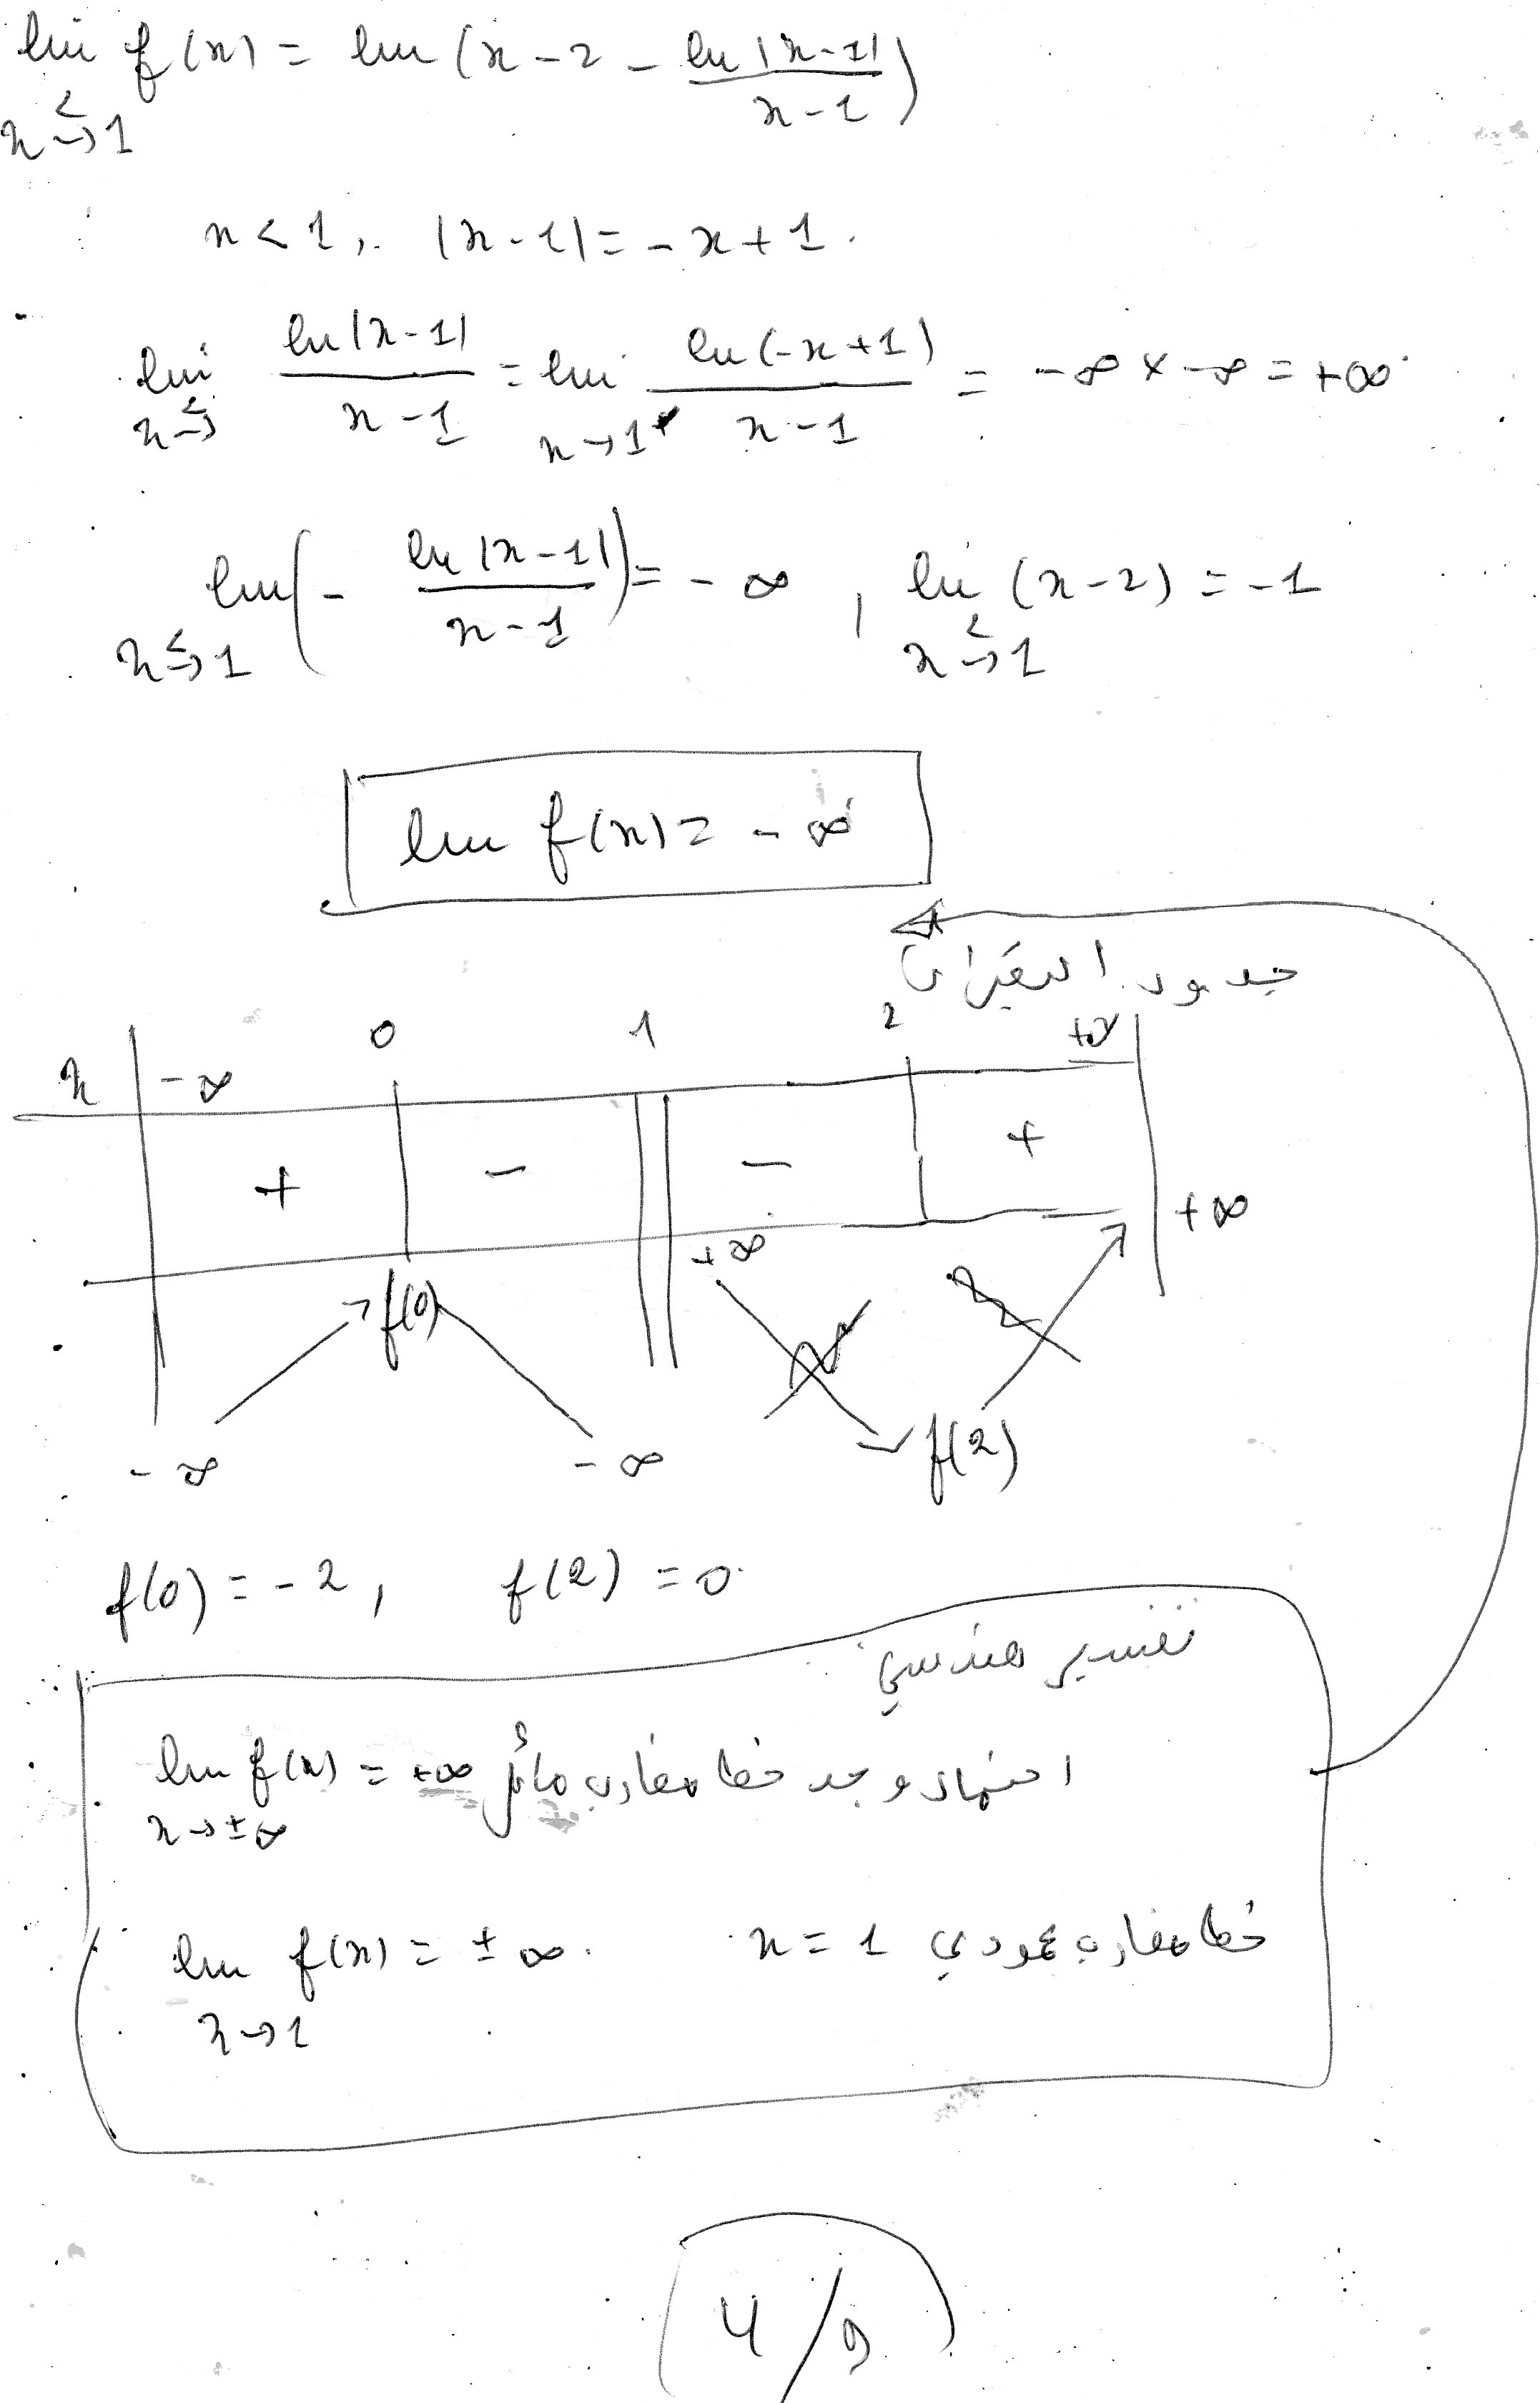 lim f(x) = lim (x - 2 - ln|x-1| / x-1)
x →< 1
x < 1, |x-1| = -x+1.
lim ln|x-1| / x-1 = lim ln(-x+1) / x-1 = -∞ × -∞ = +∞
x →< x → 1
lim (- ln|x-1| / x-1) = -∞ , lim (x-2) = -1
x →< 1 x →< 1
lim f(x) = -∞
جدول التغيرات
x -∞ 0 1 2 +∞
+ - - +
f(0) +∞ +∞
-∞ -∞ f(2)
f(0) = -2, f(2) = 0
تفسير هندسي
lim f(x) = +∞ احتمال وجد خط مقارب مائل
x → ±∞
lim f(x) = ±∞. x = 1 خط مقارب عمودي
x → 1
4/9